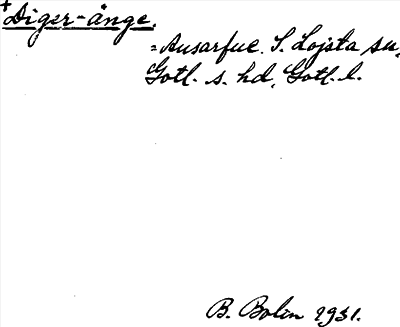 +Diger-änge.
= Ausarfve. S. Lojsta sn,
Gotl. s. hd, Gotl. l.
B. Bolin 1931.